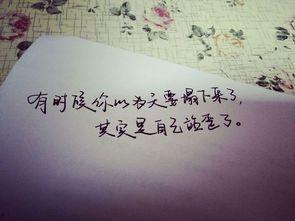 有时候你以为天要塌下来了，
其实是自己站歪了。